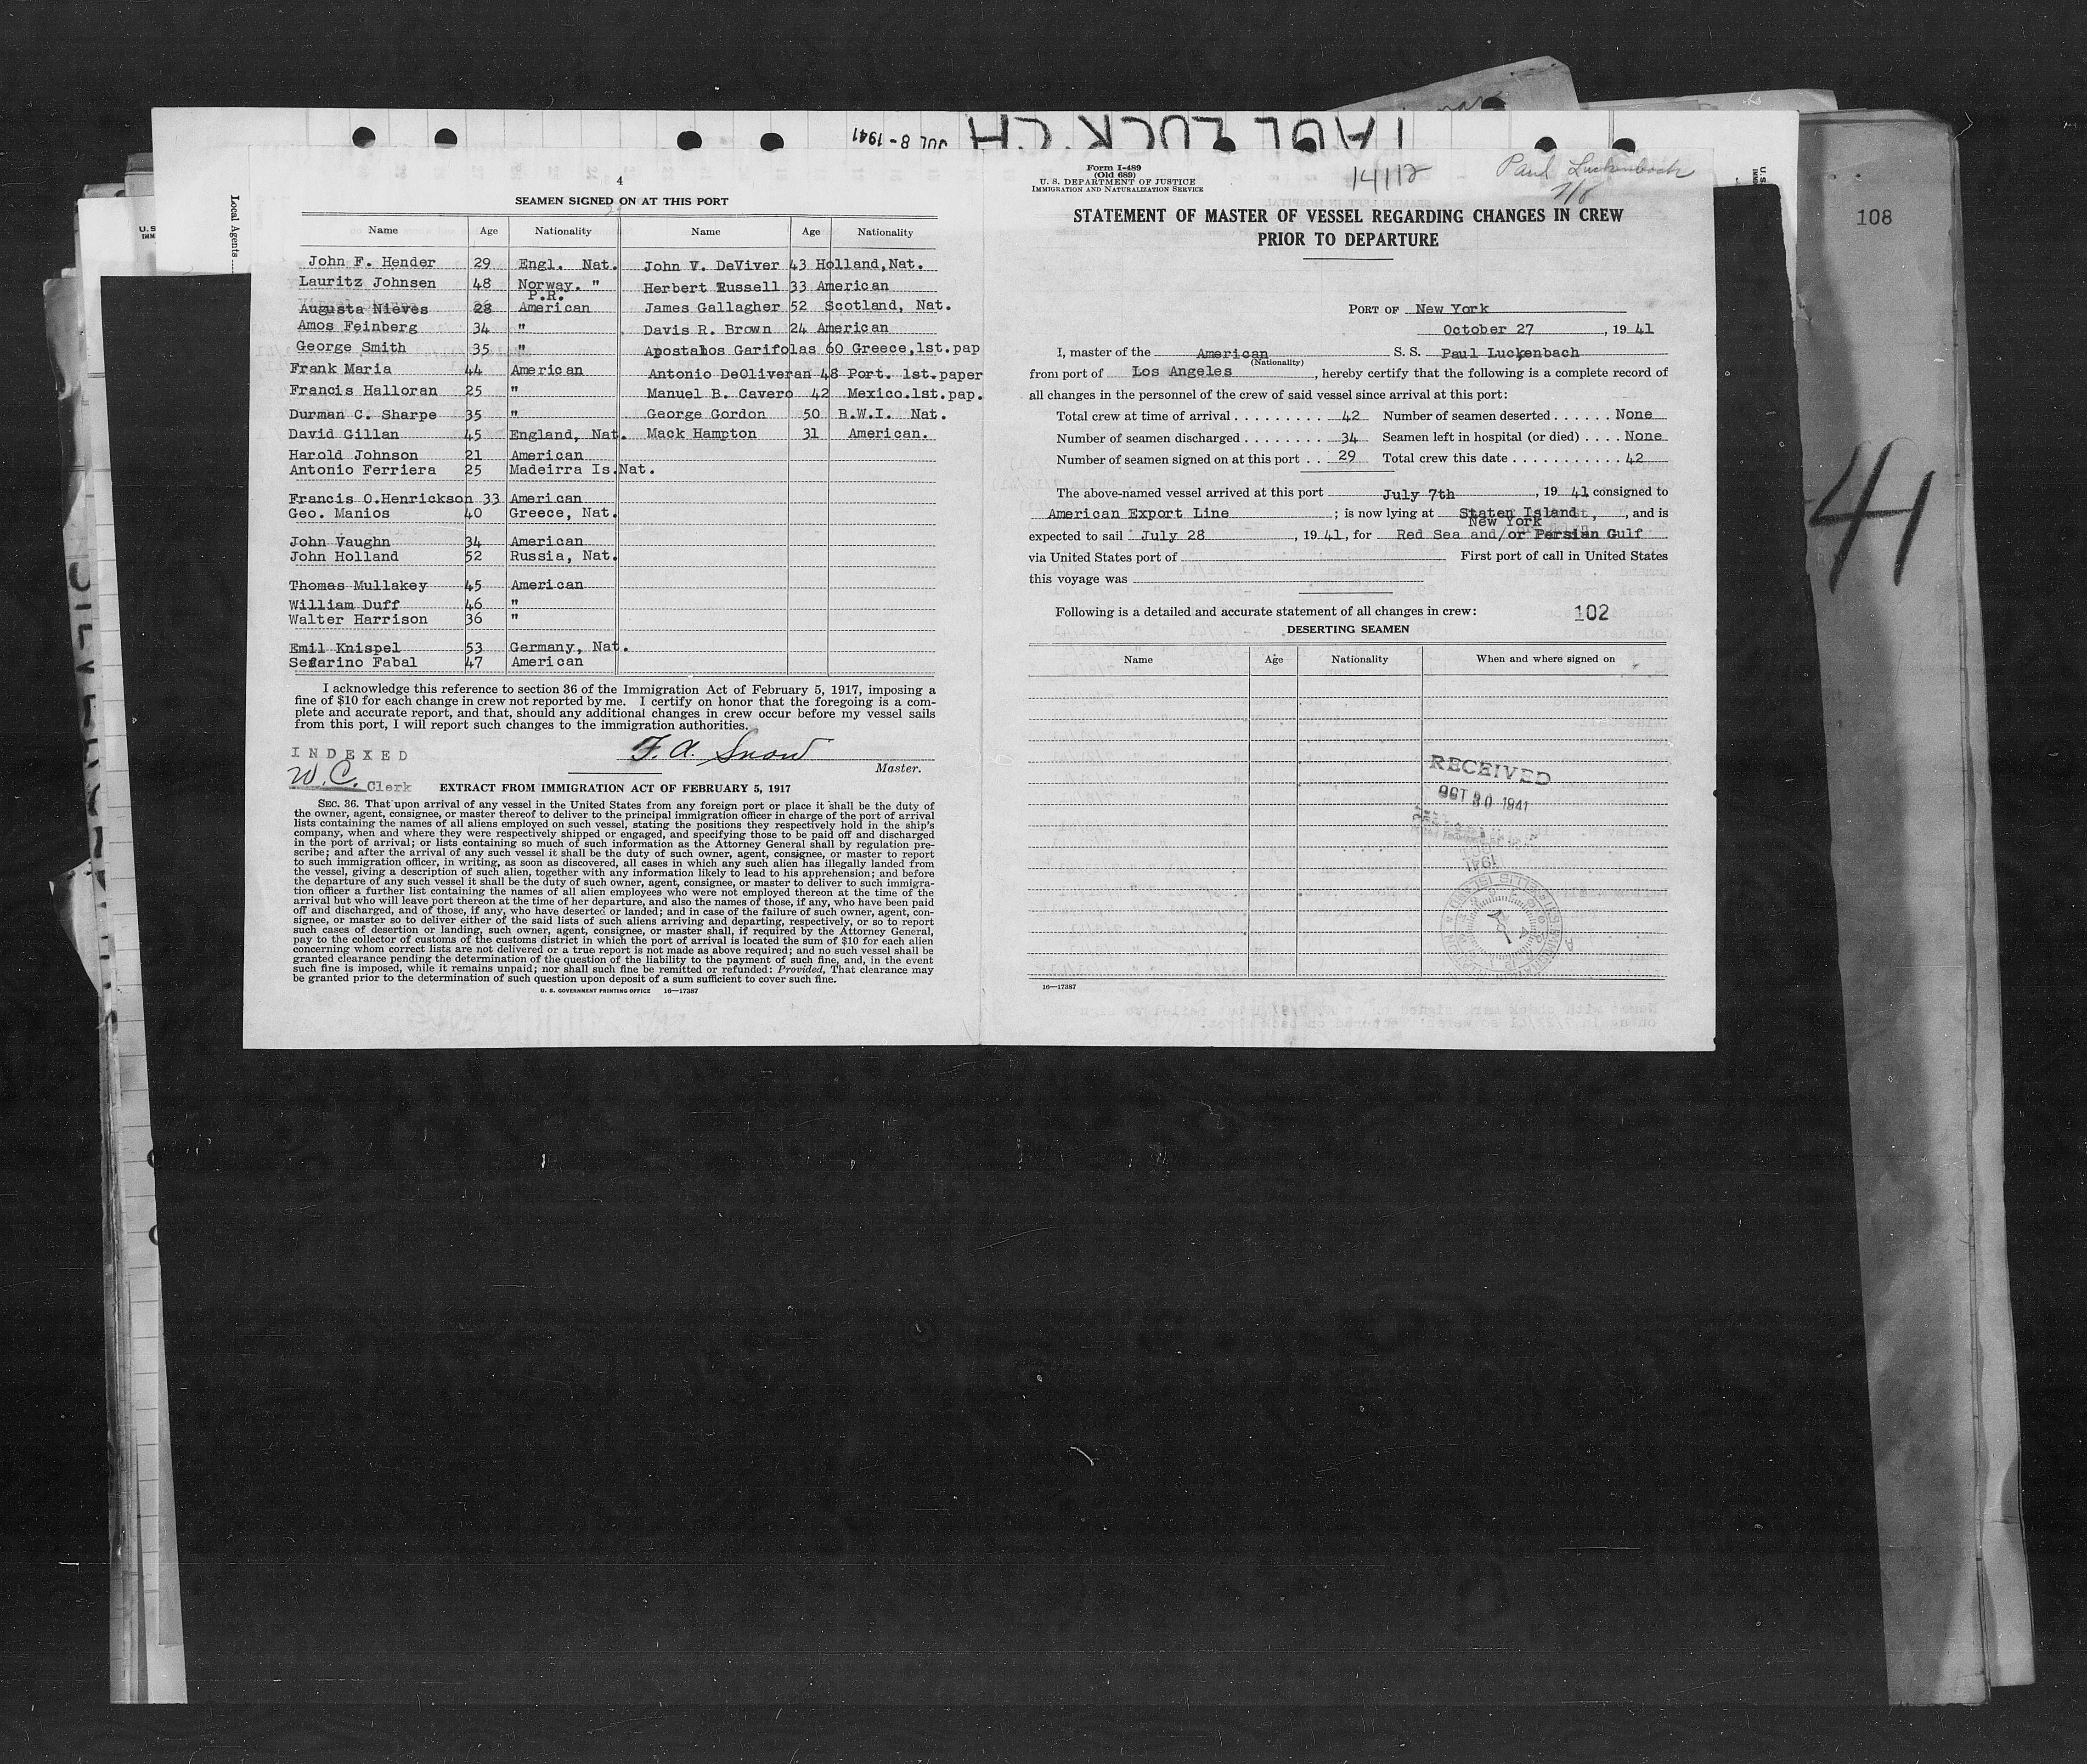 JUL 8 - 1941
PAUL LUCK.C.H
Local Agents
4
SEAMEN SIGNED ON AT THIS PORT
29
Name Age Nationality Name Age Nationality
John F. Hender 29 Engl. Nat. John V. DeViver 43 Holland,Nat.
Lauritz Johnsen 48 Norway. " Herbert Russell 33 American
P.R.
Augusta Nieves 28 American James Gallagher 52 Scotland, Nat.
Amos Feinberg 34 " Davis R. Brown 24 American
George Smith 35 " Apostalos Garifolas 60 Greece,1st.pap
Frank Maria 44 American Antonio DeOliveran 48 Port. 1st.paper
Francis Halloran 25 " Manuel B. Cavero 42 Mexico.1st.pap.
Durman C. Sharpe 35 " George Gordon 50 B.W.I. Nat.
David Gillan 45 England, Nat. Mack Hampton 31 American.
Harold Johnson 21 American
Antonio Ferriera 25 Madeirra Is.Nat.
Francis O.Henrickson 33 American
Geo. Manios 40 Greece, Nat.
John Vaughn 34 American
John Holland 52 Russia, Nat.
Thomas Mullakey 45 American
William Duff 46 "
Walter Harrison 36 "
Emil Knispel 53 Germany, Nat.
Serarino Fabal 47 American
I acknowledge this reference to section 36 of the Immigration Act of February 5, 1917, imposing a
fine of $10 for each change in crew not reported by me. I certify on honor that the foregoing is a com-
plete and accurate report, and that, should any additional changes in crew occur before my vessel sails
from this port, I will report such changes to the immigration authorities.
INDEXED
F. A. Snow
Master.
W.C. Clerk
EXTRACT FROM IMMIGRATION ACT OF FEBRUARY 5, 1917
SEC. 36. That upon arrival of any vessel in the United States from any foreign port or place it shall be the duty of
the owner, agent, consignee, or master thereof to deliver to the principal immigration officer in charge of the port of arrival
lists containing the names of all aliens employed on such vessel, stating the positions they respectively hold in the ship's
company, when and where they were respectively shipped or engaged, and specifying those to be paid off and discharged
in the port of arrival; or lists containing so much of such information as the Attorney General shall by regulation pre-
scribe; and after the arrival of any such vessel it shall be the duty of such owner, agent, consignee, or master to report
to such immigration officer, in writing, as soon as discovered, all cases in which any such alien has illegally landed from
the vessel, giving a description of such alien, together with any information likely to lead to his apprehension; and before
the departure of any such vessel it shall be the duty of such owner, agent, consignee, or master to deliver to such immigra-
tion officer a further list containing the names of all alien employees who were not employed thereon at the time of the
arrival but who will leave port thereon at the time of her departure, and also the names of those, if any, who have been paid
off and discharged, and of those, if any, who have deserted or landed; and in case of the failure of such owner, agent, con-
signee, or master so to deliver either of the said lists of such aliens arriving and departing, respectively, or so to report
such cases of desertion or landing, such owner, agent, consignee, or master shall, if required by the Attorney General,
pay to the collector of customs of the customs district in which the port of arrival is located the sum of $10 for each alien
concerning whom correct lists are not delivered or a true report is not made as above required; and no such vessel shall be
granted clearance pending the determination of the question of the liability to the payment of such fine, and, in the event
such fine is imposed, while it remains unpaid; nor shall such fine be remitted or refunded: Provided, That clearance may
be granted prior to the determination of such question upon deposit of a sum sufficient to cover such fine.
U. S. GOVERNMENT PRINTING OFFICE 16—17387
Form I-489
(Old 689)
U. S. DEPARTMENT OF JUSTICE
IMMIGRATION AND NATURALIZATION SERVICE
14112
Paul Luckenbach
7/8
STATEMENT OF MASTER OF VESSEL REGARDING CHANGES IN CREW
PRIOR TO DEPARTURE
PORT OF New York
October 27, 1941
I, master of the American S. S. Paul Luckenbach
(Nationality)
from port of Los Angeles, hereby certify that the following is a complete record of
all changes in the personnel of the crew of said vessel since arrival at this port:
Total crew at time of arrival . . . . . . . . . 42 Number of seamen deserted . . . . . . None
Number of seamen discharged . . . . . . . . 34 Seamen left in hospital (or died) . . . . None
Number of seamen signed on at this port . . 29 Total crew this date . . . . . . . . . . . . 42
The above-named vessel arrived at this port July 7th, 1941 consigned to
American Export Line ; is now lying at Staten Island, , and is
New York
expected to sail July 28, 1941, for Red Sea and/or Persian Gulf
via United States port of First port of call in United States
this voyage was
Following is a detailed and accurate statement of all changes in crew: 102
DESERTING SEAMEN
Name Age Nationality When and where signed on
RECEIVED
OCT 30 1941
1941
16—17387
108
41